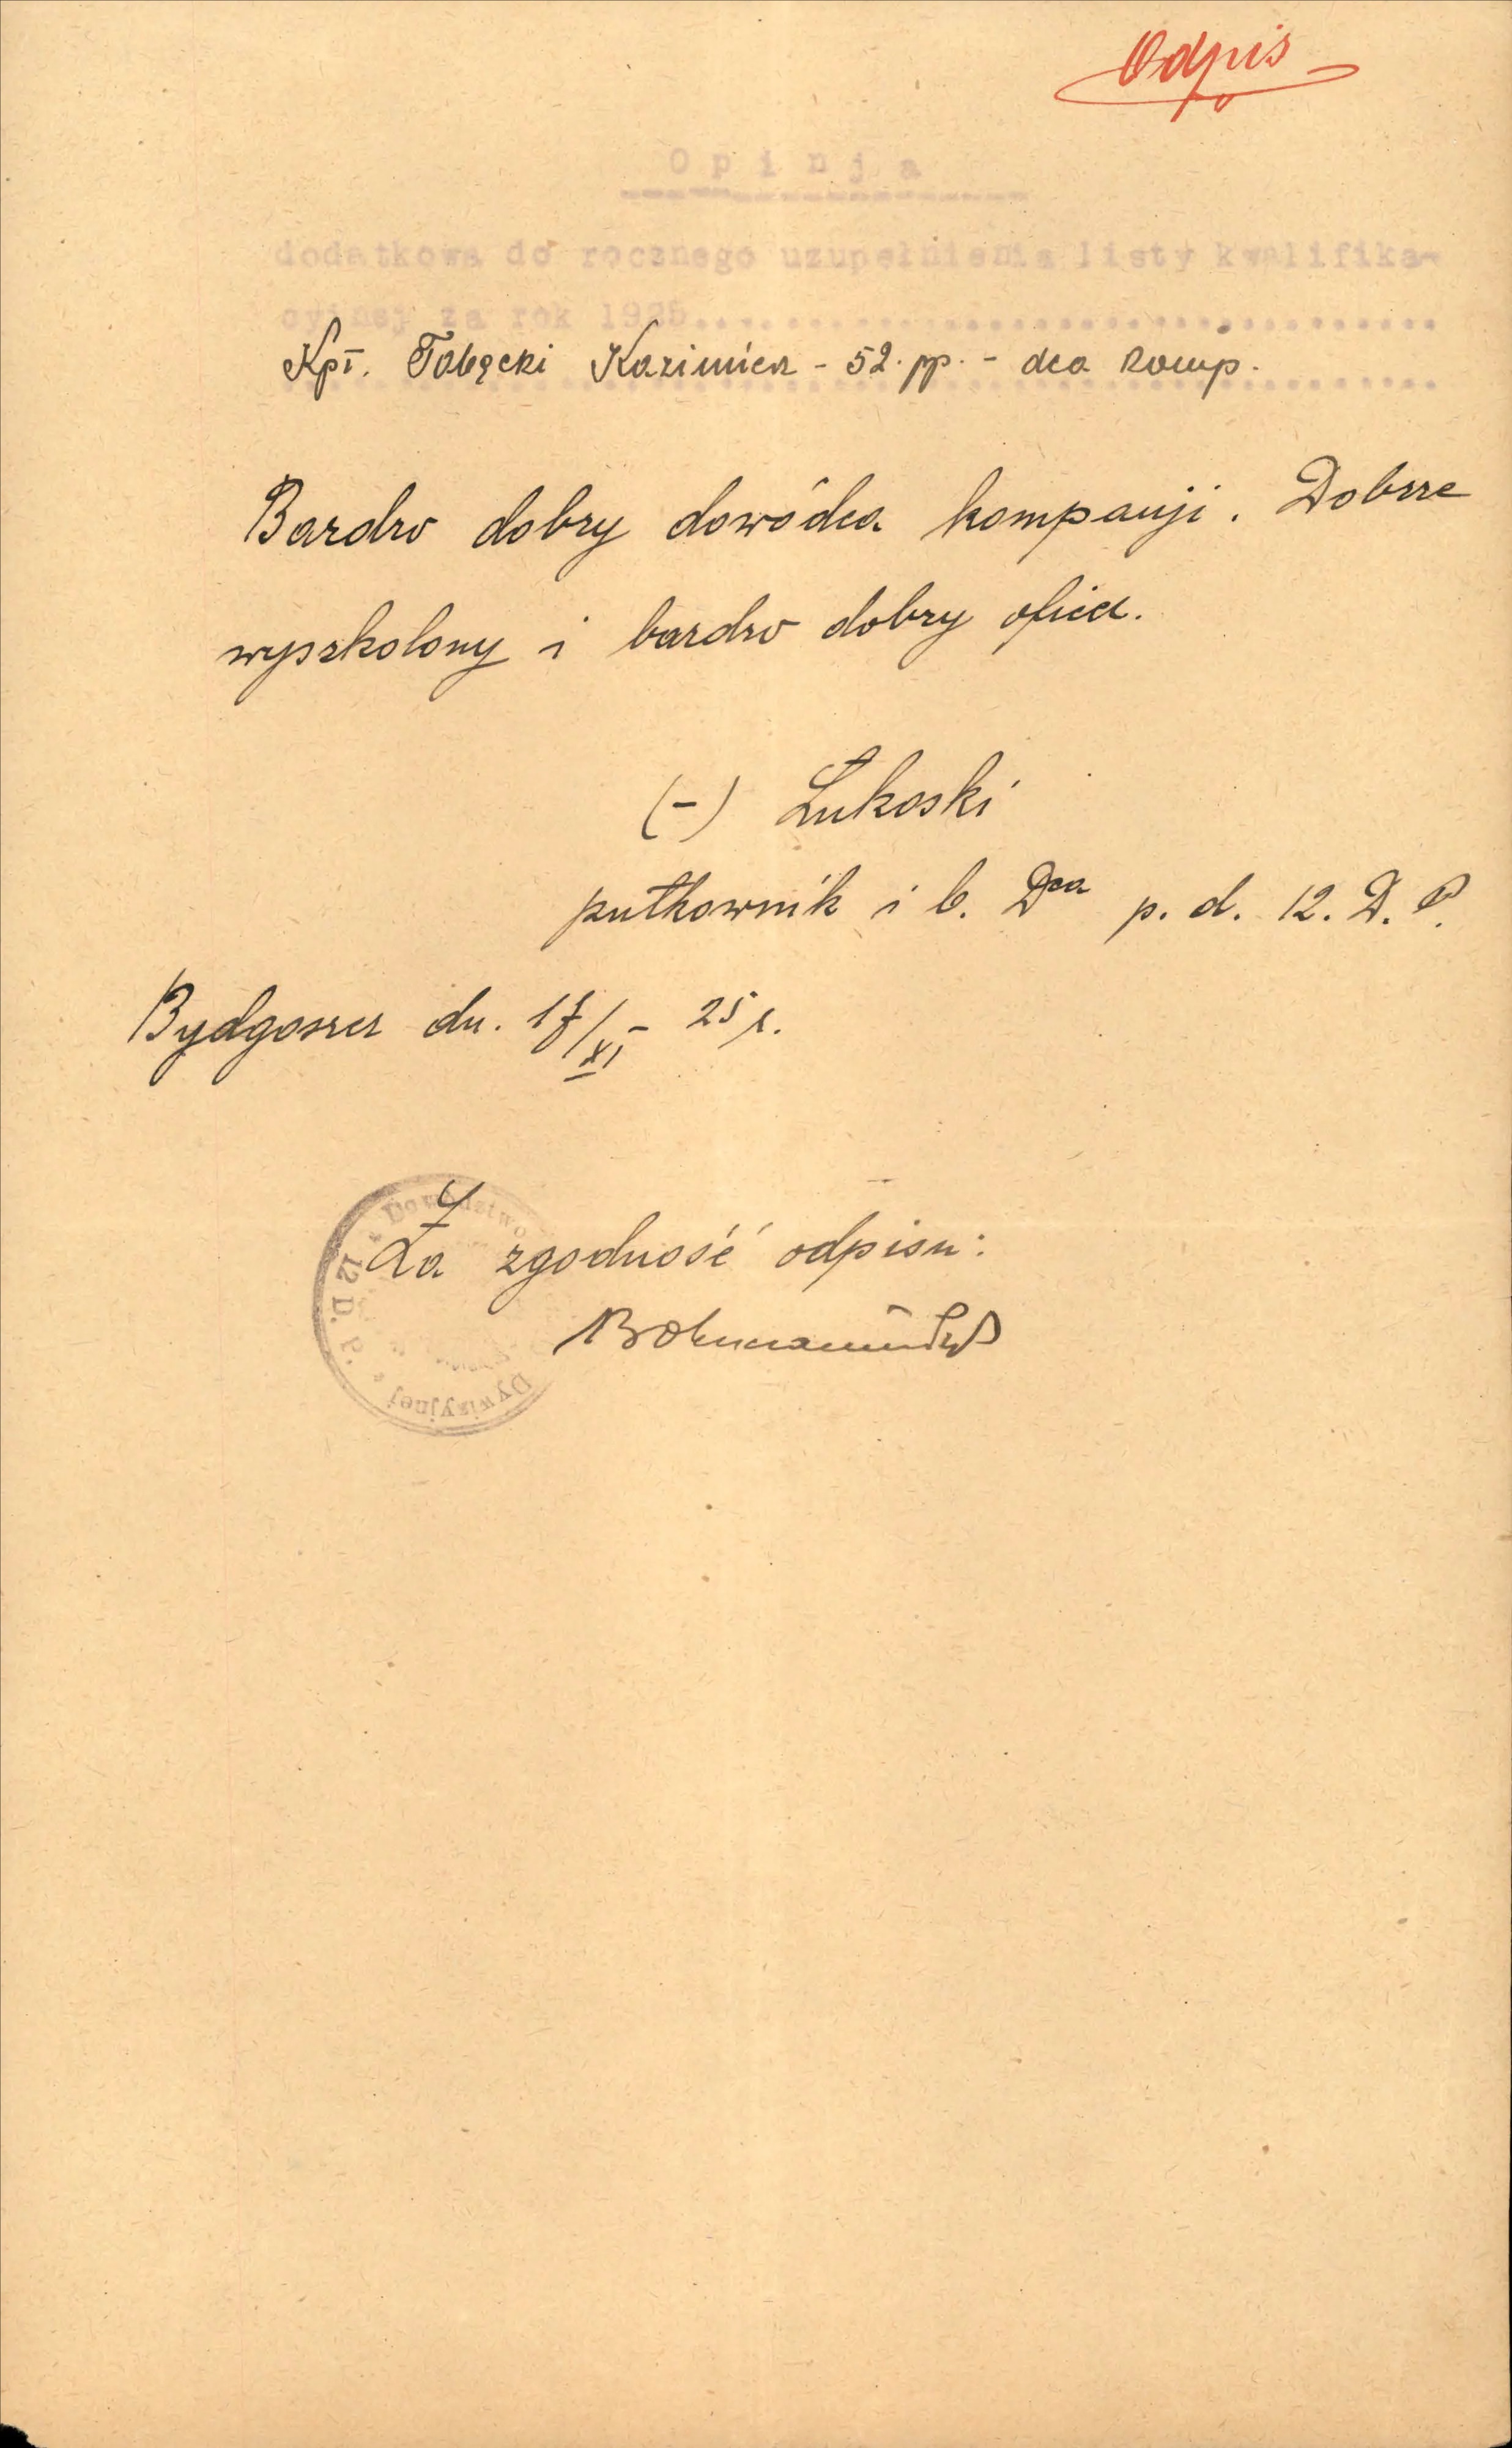 Odpis
Opinja
dodatkowa do rocznego uzupełnienia listy kwalifika-
cyjnej za rok 1925
Kpt. Tabęcki Kazimierz - 52. pp. - dca komp.
Bardzo dobry dowódca kompanji. Dobrze
wyszkolony i bardzo dobry oficer.
(-) Łukoski
pułkownik i b. Dca p. d. 12. D. P.
Bydgoszcz dn. 17/XI - 25 r.
Za zgodność odpisu:
Dowództwo
12 D. P.
Dywizyjnej